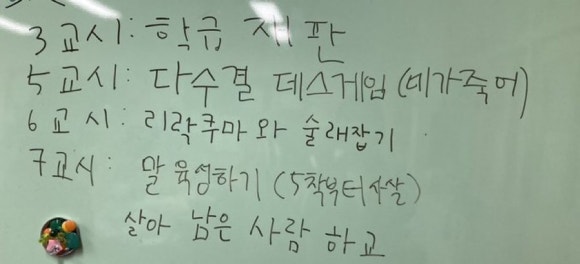 3교시: 학급 재판
5교시: 다수결 데스게임 (네가죽어)
6교시: 리락쿠마와 술래잡기
7교시: 말 육성하기 (5착부터사살)
살아 남은 사람 하교